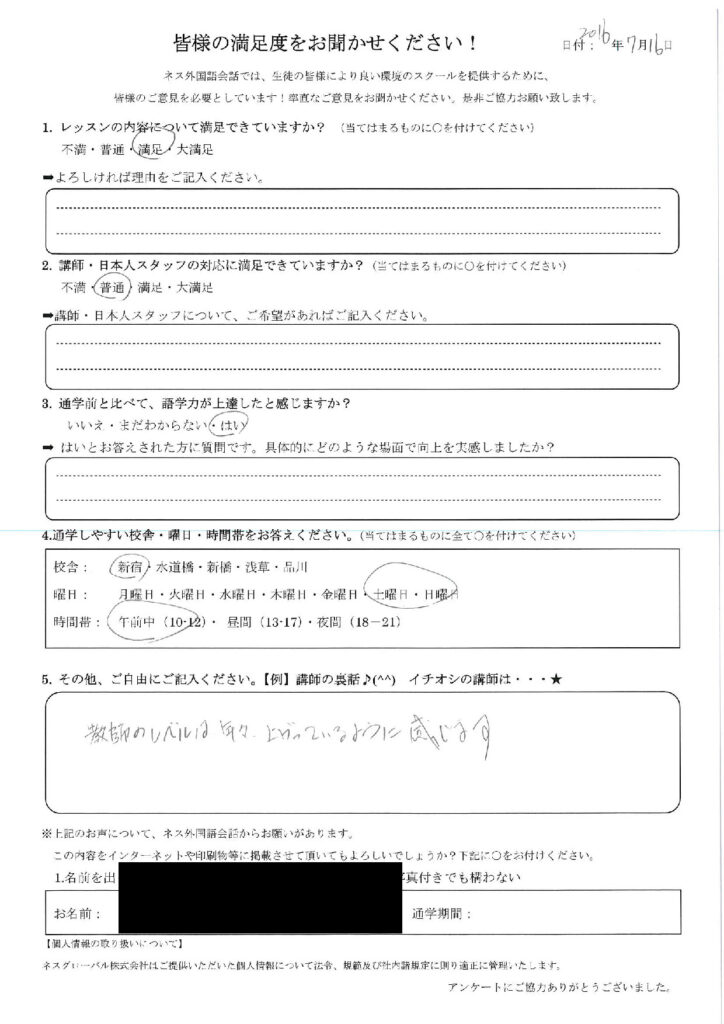 皆様の満足度をお聞かせください！
日付：2016年7月16日
ネス外国語会話では、生徒の皆様により良い環境のスクールを提供するために、
皆様のご意見を必要としています！率直なご意見をお聞かせください。是非ご協力お願い致します。
1. レッスンの内容について満足できていますか？ （当てはまるものに〇を付けてください）
不満・普通・満足・大満足
➡よろしければ理由をご記入ください。
2. 講師・日本人スタッフの対応に満足できていますか？（当てはまるものに〇を付けてください）
不満・普通・満足・大満足
➡講師・日本人スタッフについて、ご希望があればご記入ください。
3. 通学前と比べて、語学力が上達したと感じますか？
いいえ・まだわからない・はい
➡ はいとお答えされた方に質問です。具体的にどのような場面で向上を実感しましたか？
4.通学しやすい校舎・曜日・時間帯をお答えください。（当てはまるものに全て〇を付けてください）
校舎： 新宿・水道橋・新橋・浅草・品川
曜日： 月曜日・火曜日・水曜日・木曜日・金曜日・土曜日・日曜日
時間帯： 午前中（10-12）・ 昼間（13-17）・夜間（18－21）
5. その他、ご自由にご記入ください。【例】講師の裏話♪(^^) イチオシの講師は・・・★
教師のレベルは年々、上がっているように感じます
※上記のお声について、ネス外国語会話からお願いがあります。
この内容をインターネットや印刷物等に掲載させて頂いてもよろしいでしょうか？下記に〇をお付けください。
1.名前を出 真付きでも構わない
お名前： 通学期間：
【個人情報の取り扱いについて】
ネスグローバル株式会社はご提供いただいた個人情報について法令、規範及び社内諸規定に則り適正に管理いたします。
アンケートにご協力ありがとうございました。